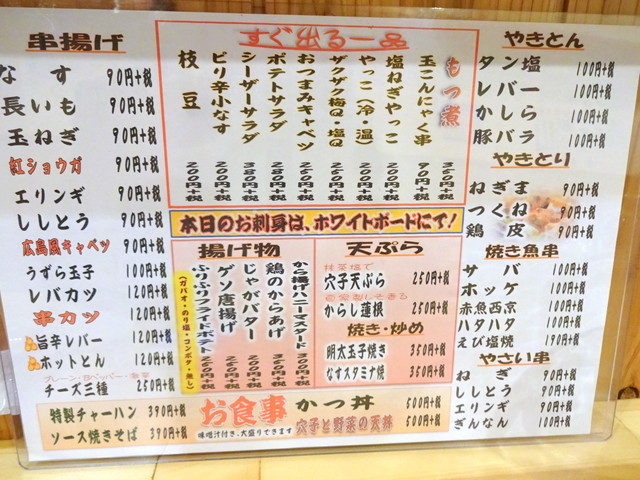 串揚げ
なす 90円+税
長いも 90円+税
玉ねぎ 90円+税
紅ショウガ 90円+税
エリンギ 90円+税
ししとう 90円+税
広島風キャベツ 90円+税
うずら玉子 100円+税
レバカツ 120円+税
串カツ 120円+税
旨辛レバー 120円+税
ホットとん 120円+税
チーズ三種 250円+税
特製チャーハン 390円+税
ソース焼きそば 390円+税
すぐ出る一品
もつ煮 350円+税
玉こんにゃく串 90円+税
塩ねぎやっこ
やっこ(冷・温) 200円+税
ザクザク梅Q・塩Q
おつまみキャベツ 200円+税
ポテトサラダ
シーザーサラダ 380円+税
ピリ辛小なす 200円+税
枝豆 200円+税
本日のお刺身は、ホワイトボードにて!
揚げ物
から揚げハニーマスタード 300円+税
鶏のからあげ
じゃがバター
ゲソ唐揚げ
ふりふりフライドポテト
(ガパオ・のり塩・コンポタ・無し)
天ぷら
抹茶塩で
穴子天ぷら 250円+税
からし蓮根 250円+税
焼き・炒め
明太玉子焼き 350円+税
なすスタミナ焼 350円+税
お食事
味噌汁付き、大盛りできます
かつ丼 500円+税
穴子と野菜の天丼 500円+税
やきとん
タン塩 100円+税
レバー 100円+税
かしら 100円+税
豚バラ 100円+税
やきとり
ねぎま 90円+税
つくね 90円+税
鶏皮 90円+税
焼き魚串
サバ 100円+税
ホッケ 100円+税
赤魚西京 100円+税
ハタハタ 100円+税
えび塩焼 190円+税
やさい串
ねぎ 90円+税
ししとう 90円+税
エリンギ 90円+税
ぎんなん 100円+税